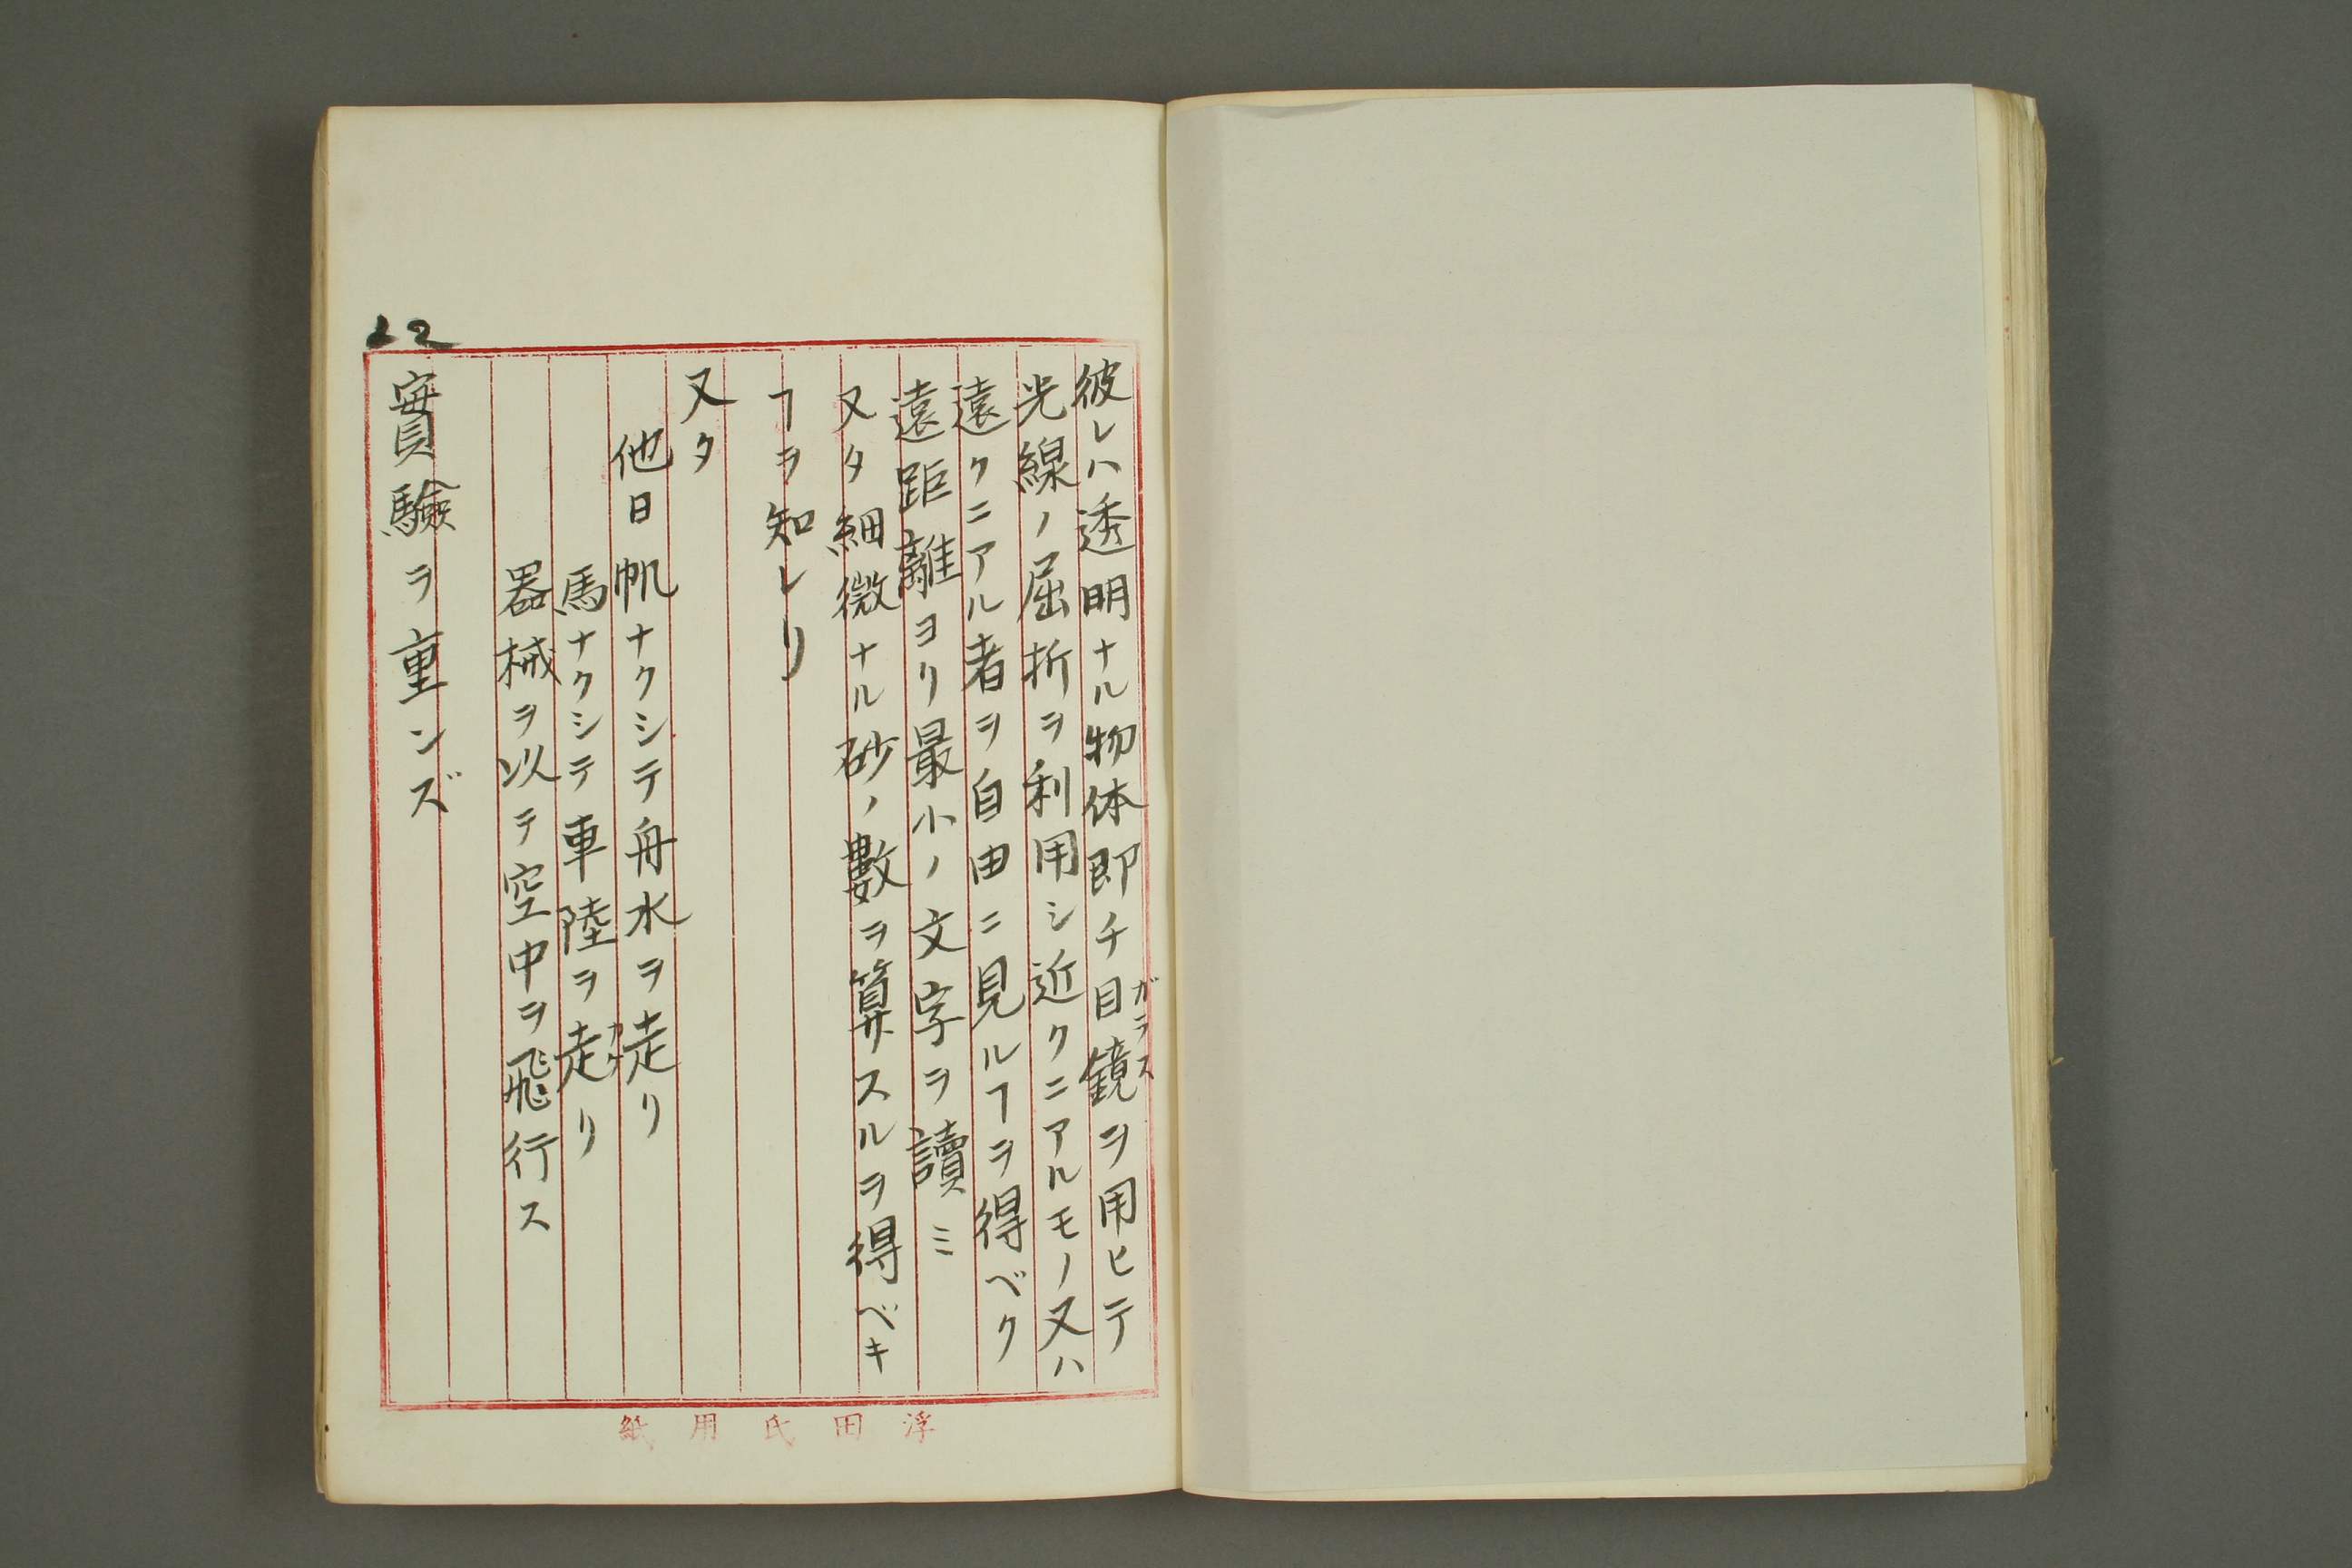 22
彼レハ透明ナル物体即チ目鏡ヲ用ヒテ
ガラス
光線ノ屈折ヲ利用シ近クニアルモノ又ハ
遠クニアル者ヲ自由ニ見ルヿヲ得ベク
遠距離ヨリ最小ノ文字ヲ讀ミ
又タ細微ナル砂ノ數ヲ算スルヲ得ベキ
ヿヲ知レリ
又タ
他日帆ナクシテ舟水ヲ走リ
馬ナクシテ車陸ヲ走リ
器械ヲ以テ空中ヲ飛行ス
實驗ヲ重ンズ
浮田氏用紙